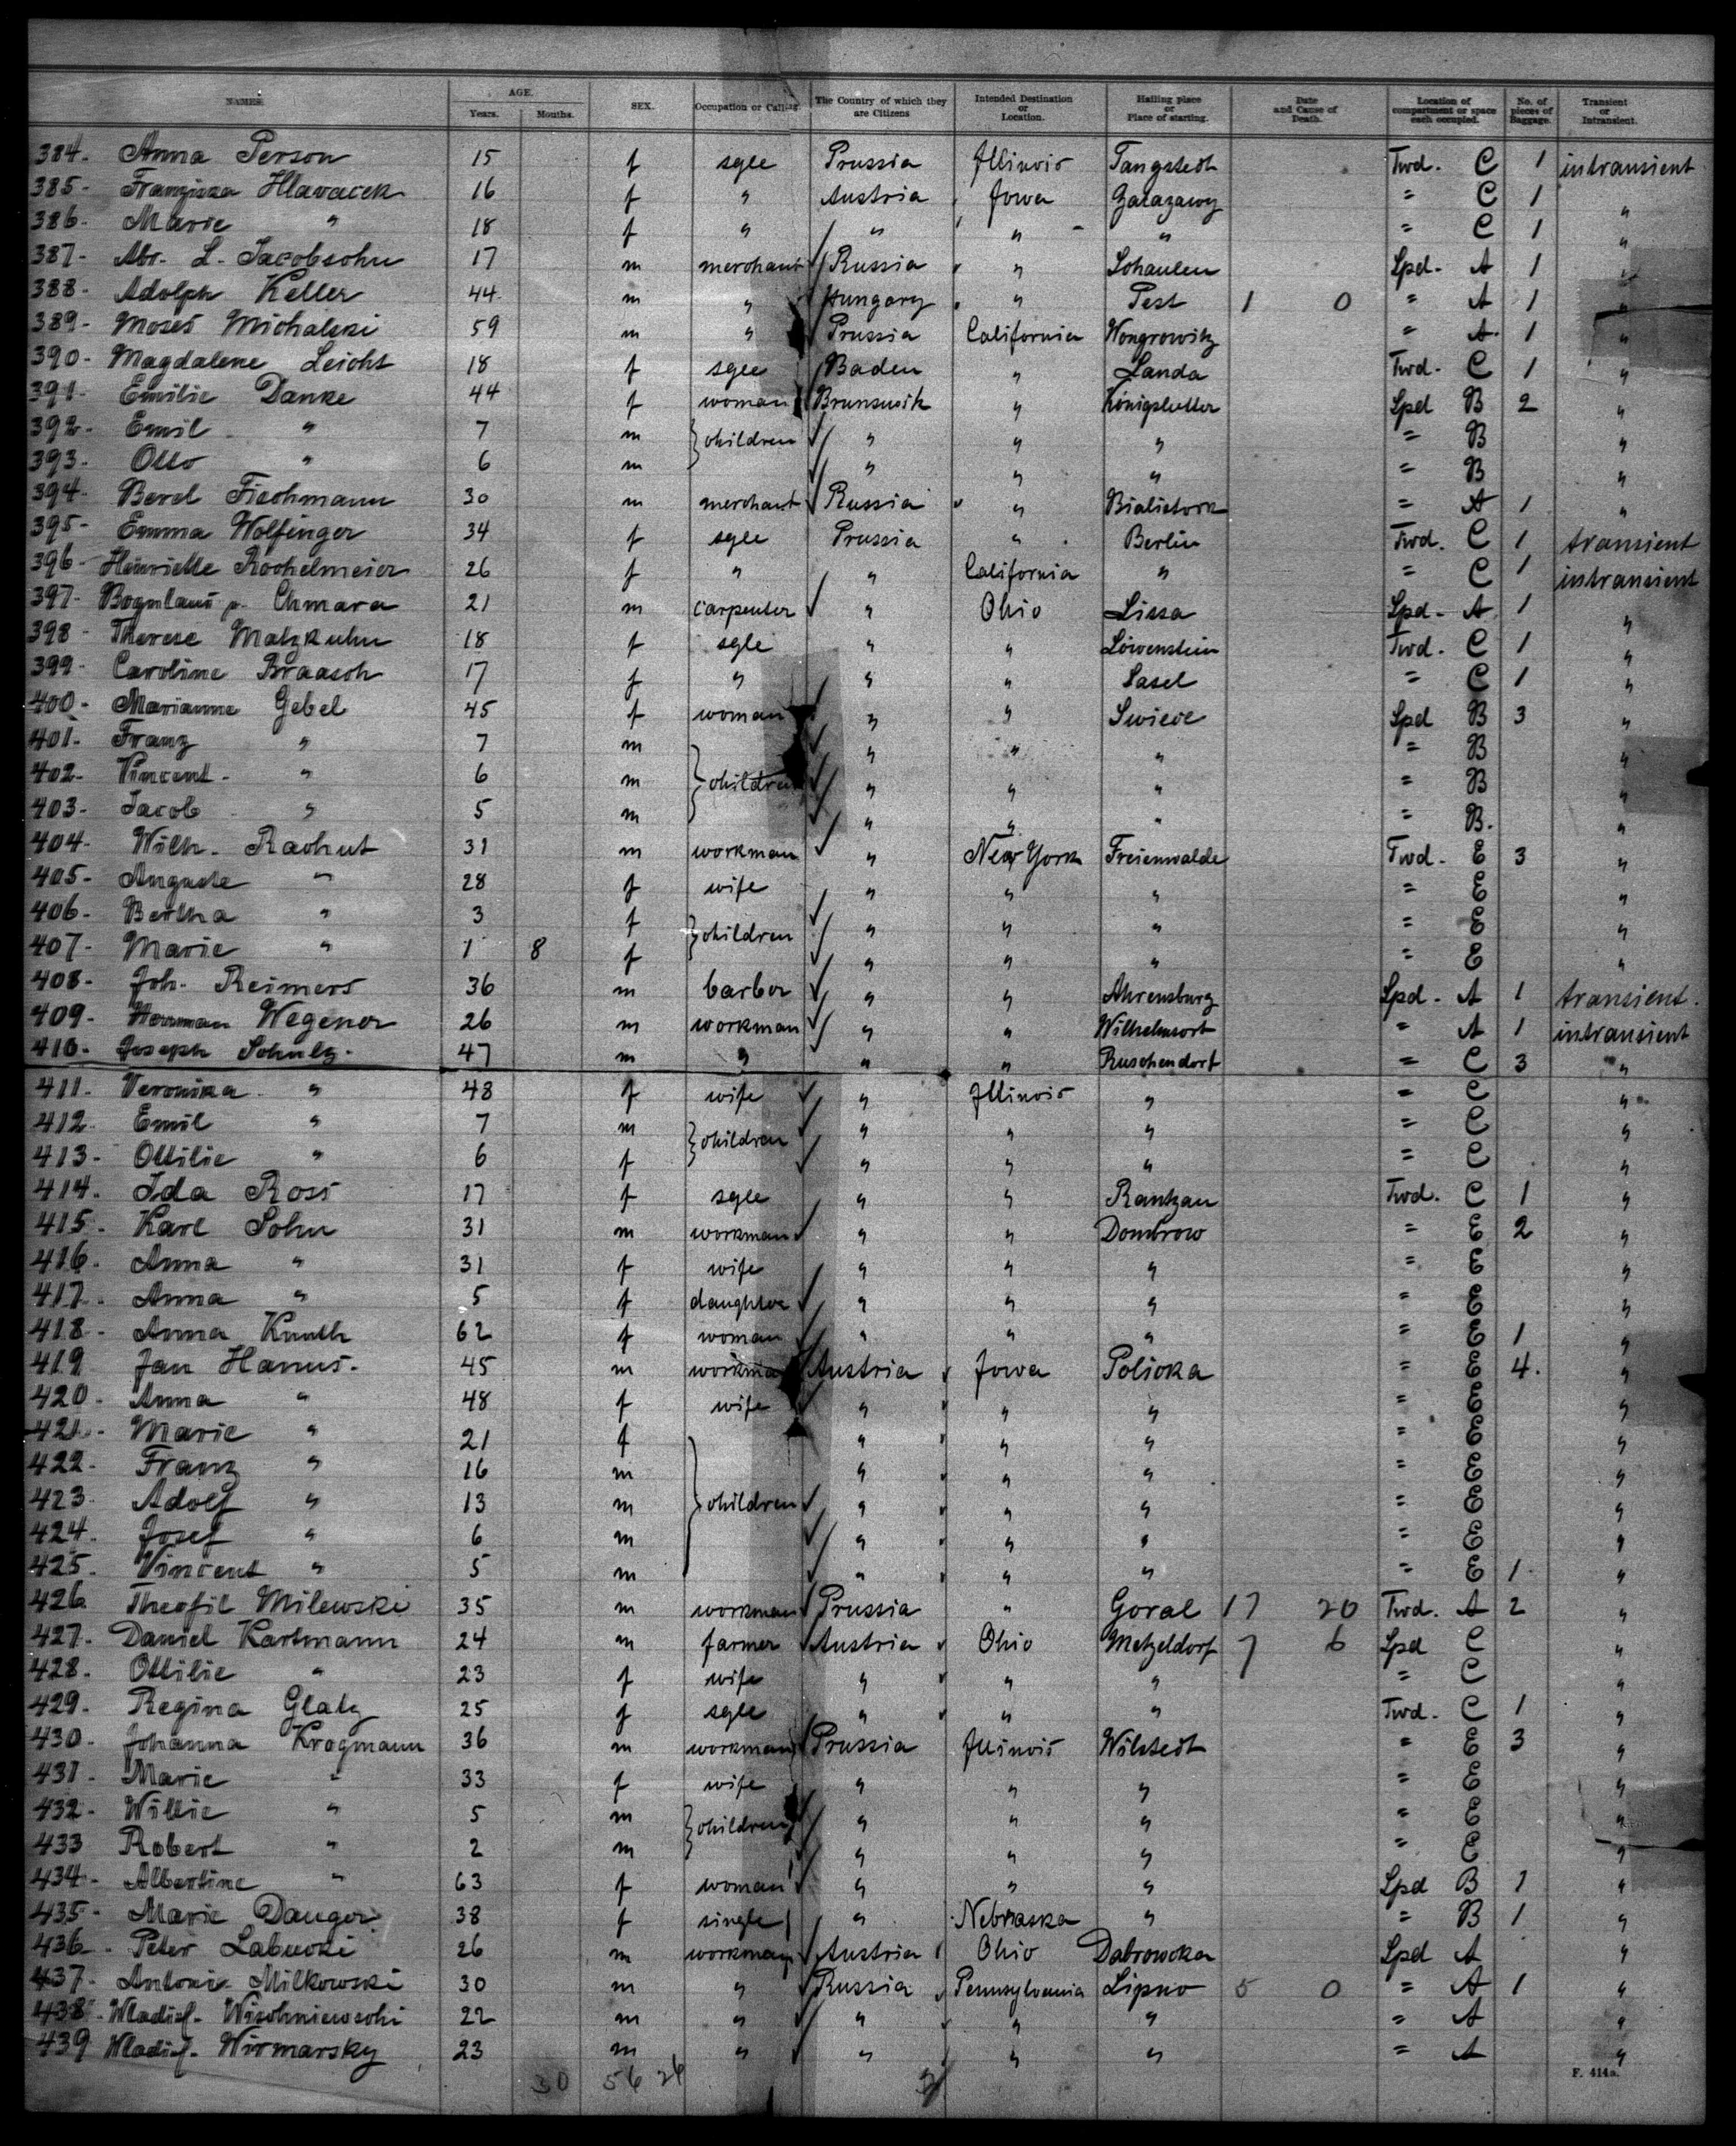 NAMES. AGE. Years. Months. SEX. Occupation or Calling. The Country of which they are Citizens Intended Destination or Location. Hailing place or Place of starting. Date and Cause of Death. Location of compartment or space each occupied. No. of pieces of Baggage. Transient or Intransient.
384. Anna Person 15 f sgle Prussia Illinois Tangstedt Twd. C 1 intransient
385. Franziska Hlavacek 16 f " Austria Iowa = C 1 "
386. Marie " 18 f " " " " = C 1 "
387. Abr. L. Jacobsohn 17 m merchant Russia " Schaulen Spd. A 1 "
388. Adolph Keller 44 m " Hungary " Pest 1 0 " A 1 "
389. Moses Michalski 59 m " Prussia California Wongrowitz = A 1 "
390. Magdalene Leicht 18 f sgle Baden " Landa Twd. C 1 "
391. Emilie Danke 44 f woman Brunswik " Königslutter Spd B 2 "
392. Emil " 7 m } children " " " = B "
393. Otto " 6 m " " " = B "
394. Berel Fischmann 30 m merchant Russia " Bialistock = A 1 "
395. Emma Wolfinger 34 f sgle Prussia " Berlin Twd. C 1 transient
396. Henriette Rochelmeier 26 f " " California " = C 1 intransient
397. Chmara 21 m carpenter " Ohio Lissa Spd. A 1 "
398. Therese Matzkuhn 18 f sgle " " Löwenstein Twd. C 1 "
399. Caroline Braasch 17 f " " " Sasel = C 1 "
400. Marianne Gebel 45 f woman " " Swiece Spd B 3 "
401. Franz " 7 m " " " = B "
402. Vincent " 6 m } children " " " = B "
403. Jacob " 5 m " " " = B. "
404. Wilh. Rachut 31 m workman " New York Freienwalde Twd. E 3 "
405. Auguste " 28 f wife " " " = E "
406. Bertha " 3 f } children " " " = E "
407. Marie " 1 8 f " " " = E "
408. Joh. Reimers 36 m barber " " Ahrensburg Spd. A 1 transient.
409. Herman Wegener 26 m workman " " Wilhelmsort " A 1 intransient
410. Joseph Schulz. 47 m " " " Ruschendorf = C 3 "
411. Veronika " 48 f wife " Illinois " = C "
412. Emil " 7 m } children " " " = C "
413. Ottilie " 6 f " " " = C "
414. Ida Ross 17 f sgle " " Rantzau Twd. C 1 "
415. Karl Sohn 31 m workman " " Dombrow " E 2 "
416. Anna " 31 f wife " " " = E "
417. Anna " 5 f daughter " " " = E "
418. Anna Knuth 62 f woman " " " = E 1 "
419 Jan Hanus. 45 m workman Austria Iowa Policka = E 4. "
420. Anna " 48 f wife " " " = E "
421. Marie " 21 f " " " = E "
422. Franz " 16 m " " " = E "
423. Adolf " 13 m } children " " " = E "
424. Josef " 6 m " " " = E "
425. Vincent " 5 m " " " = E 1 "
426 Theofil Milewski 35 m workman Prussia " Goral 17 20 Twd. A 2 "
427. Daniel Kartmann 24 m farmer Austria Ohio Metzeldorf 7 6 Spd C "
428. Ottilie " 23 f wife " " " = C "
429. Regina Glatz 25 f sgle " " " Twd. C 1 "
430. Johanna Krogmann 36 m workman Prussia Illinois Wilstedt " E 3 "
431. Marie " 33 f wife " " " = E "
432. Willie " 5 m } children " " " = E "
433 Robert " 2 m " " " = E "
434. Albertine " 63 f woman " " " Spd B 1 "
435. Marie 38 f single " Nebraska " = B 1 "
436. Peter 26 m workman Austria Ohio Dabrowcka Spd A "
437. Antoni Milkowski 30 m " Russia Pennsylvania Lipno 5 0 = A 1 "
438. Wladisl. Wischniewschi 22 m " " " " = A "
439 Wladisl. Wirmarsky 23 m " " " " = A "
30 56 26
F. 414a.